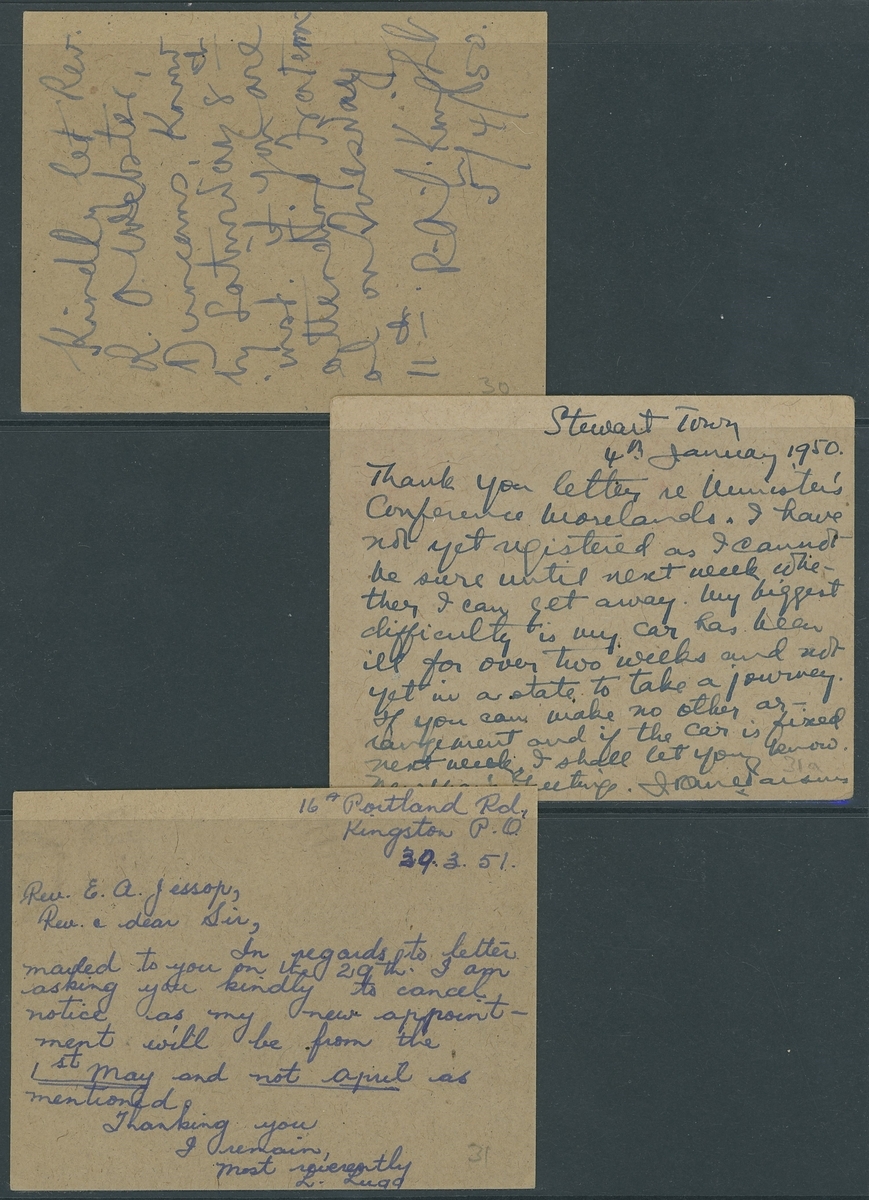 Kindly let Rev.
R. O. Webster,
Duncans, know
by Saturday 8th
inst. if you are
attending Fratern
al on Tuesday
11th. R.A.L. Knight
5/4/50.
30
Stewart Town
4th January 1950.
Thank you letter re Minister's
Conference Morelands. I have
not yet registered as I cannot
be sure until next week whe-
ther I can get away. My biggest
difficulty is my car has been
ill for over two weeks and not
yet in a state to take a journey.
If you can make no other ar-
rangement and if the car is fixed
next week, I shall let you know.
31a
16A Portland Rd,
Kingston P.O
30.3.51.
Rev. E. A. Jessop,
Rev. & dear Sir,
In regards to letter
mailed to you on the 29th. I am
asking you kindly to cancel
notice as my new appoint-
ment will be from the
1st May and not April as
mentioned.
Thanking you
I remain,
Most reverently
L. Lugg
31